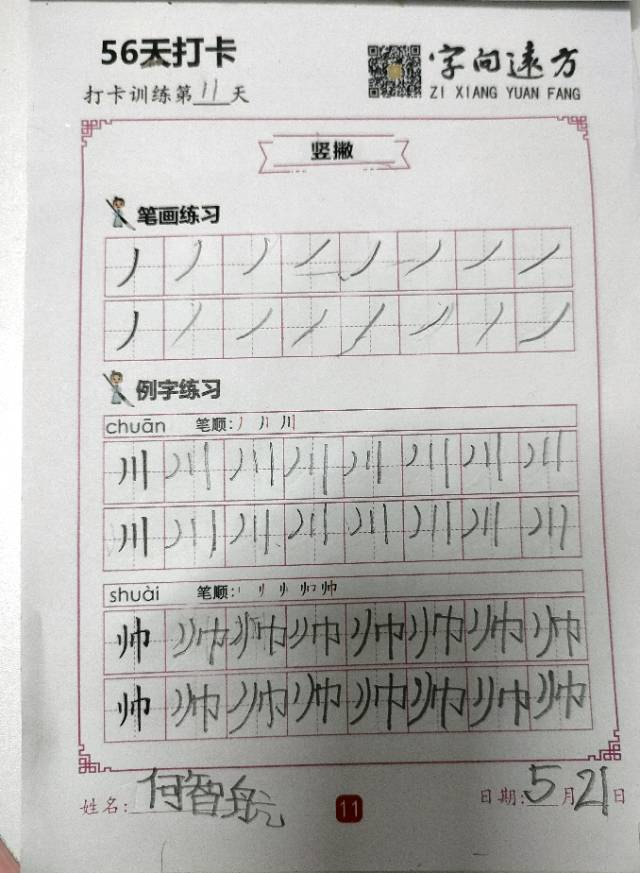 56天打卡
字向远方
打卡训练第11天
ZI XIANG YUAN FANG
竖撇
笔画练习
丿丿丿丿丿丿丿丿
丿丿丿丿丿丿丿丿
例字练习
chuān 笔顺:丿 丿丨 川
川川川川川川川川
川川川川川川川川
shuài 笔顺:
帅帅帅帅帅帅帅帅
帅帅帅帅帅帅帅帅
姓名:何智航 11 日期:5月21日